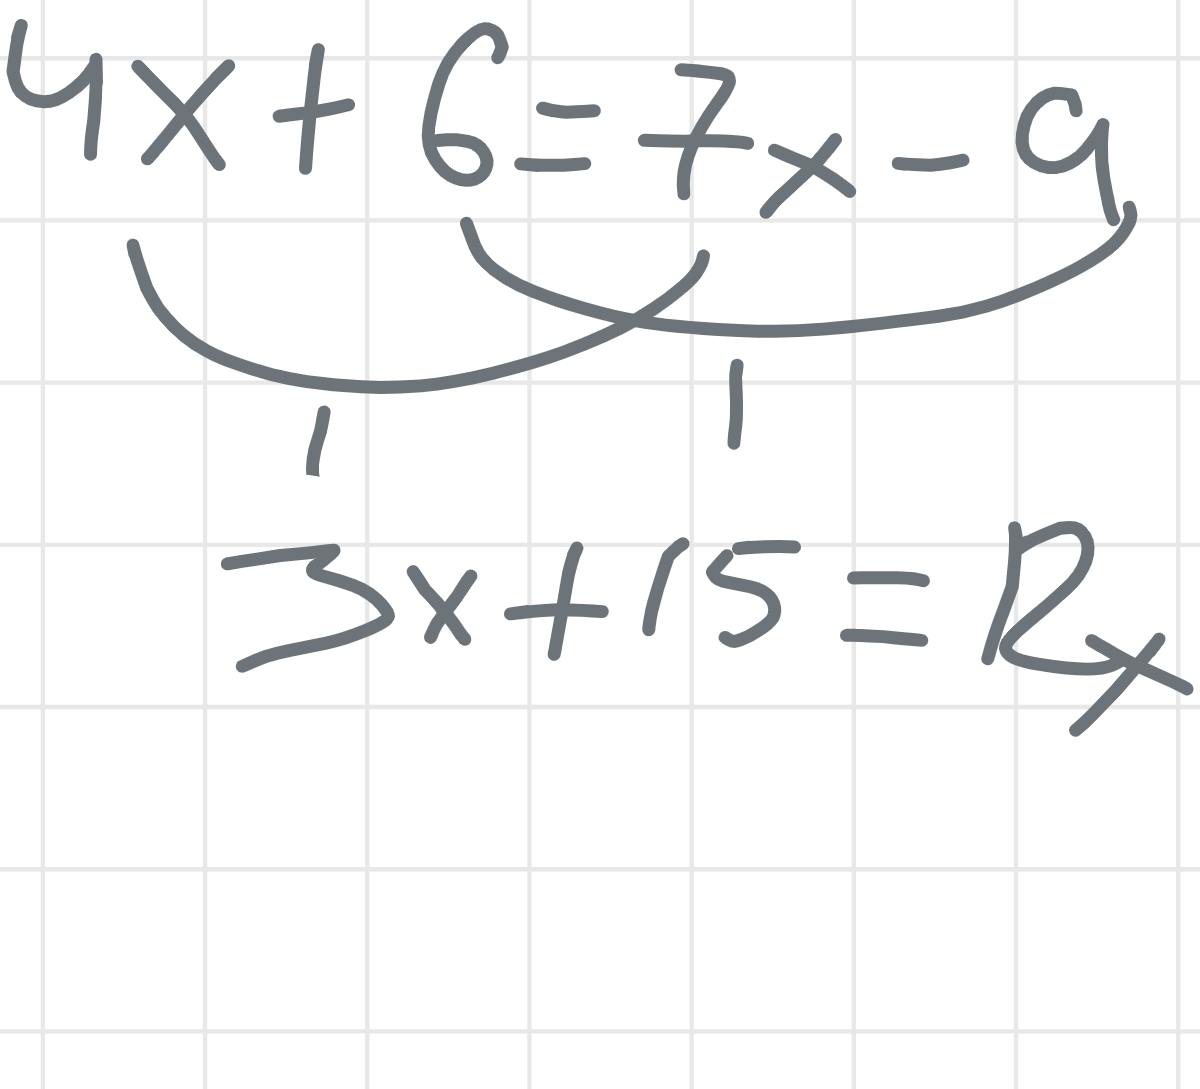 4x + 6 = 7x - 9
3x + 15 = Rx